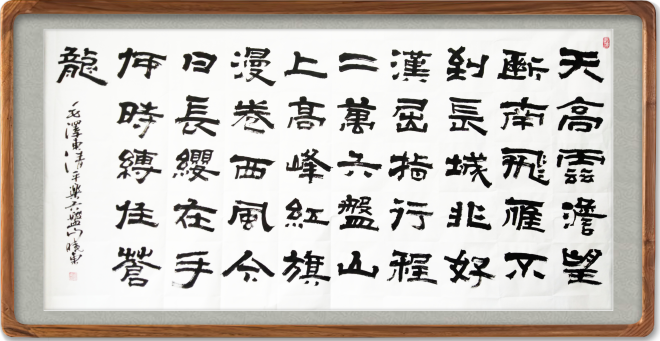 天高雲澹望
断南飛雁不
到長城非好
漢屈指行程
二萬六盤山
上高峰紅旗
漫卷西風今
日長纓在手
何時縛住蒼
龍
毛澤東清平樂六盤山